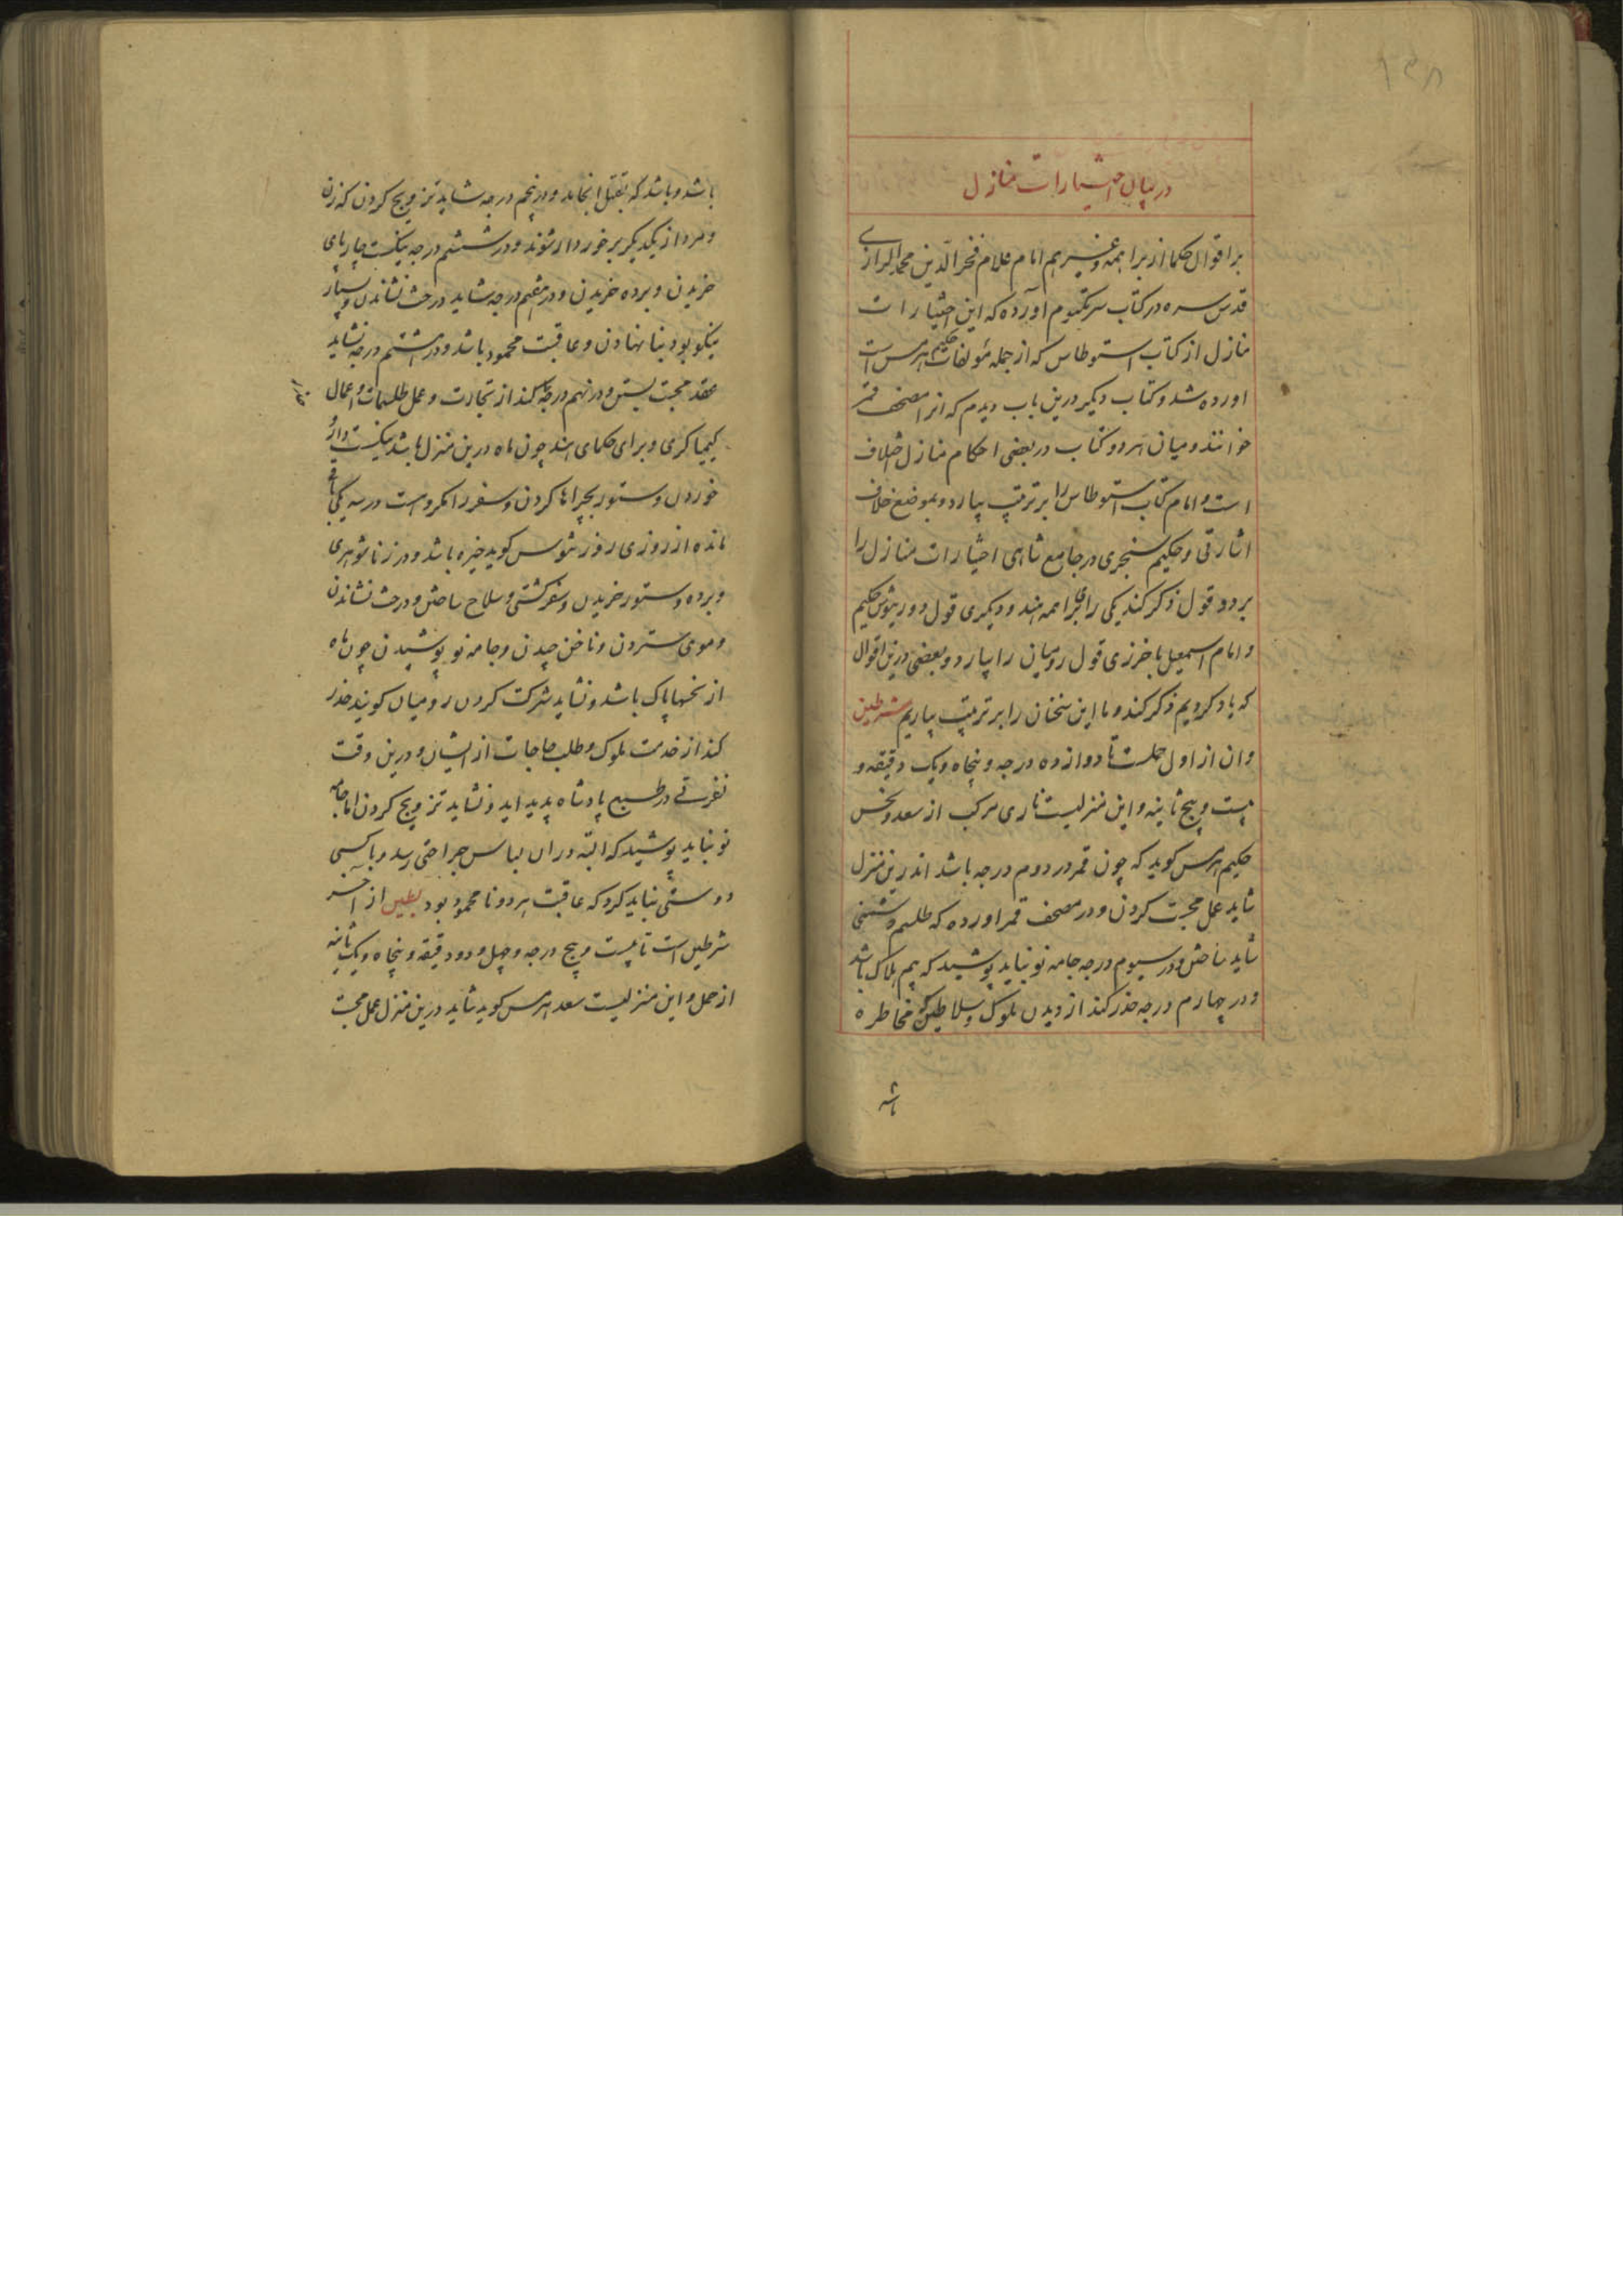 ۱۳۸
در بیان اختیارات منازل
بر اقوال حکما از براهمه و غیرهم امام علام فخر الدین محمد الرازی
قدس سره در کتاب سر مکتوم آورده که این اختیارات
منازل از کتاب اسنوطاس که از جمله مؤلفات حکیم هرمس است
اورده شد و کتاب دیکر درین باب دیدم که انرا مصحف قمر
خوانند و میان هر دو کتاب در بعضی احکام منازل اختلاف
است و امام کتاب اسنوطاس را بر ترتیب بیارد و بموضع خلاف
اشارتی و حکیم سنجری در جامع شاهی اختیارات منازل را
بر دو قول ذکر کند یکی رای براهمه هند و دیکری قول دوریثوس حکیم
و امام اسمعیل باخرزی قول رومیان را بیارد و بعضی درین اقوال
که یاد کردیم ذکر کند و ما این سخنان را بر ترتیب بیاریم شرطین
وان از اول حملست تا دوازده درجه و پنجاه و یک دقیقه و
بیست و پنج ثانیه و این منزلیست ناری مرکب از سعد و نحس
حکیم هرمس کوید که چون قمر در دوم درجه باشد اندرین منزل
شاید عمل محبت کردن و در مصحف قمر اورده که طلسم دشمنی
شاید ساختن و در سیوم درجه جامه نو نباید پوشید که بیم هلاک باشد
و در چهارم درجه حذر کند از دیدن ملوک و سلاطین که مخاطره
باشد
باشد و باشد که بقتل انجامد و در پنجم درجه شاید تزویج کردن که زن
و مرد از یکدیکر برخوردار شوند و در ششم درجه نیکست چارپای
خریدن و برده خریدن و در هفتم درجه شاید درخت نشاندن و بسیار
نیکو بود بنا نهادن و عاقبت محمود باشد و در هشتم درجه نشاید
عقد محبت بستن و در نهم درجه کند از تجارت و عمل طلسمات و اعمال
کیمیاکری و برای حکمای هند چون ماه درین منزل باشد نیکست دارو
خوردن و ستور بچرا رها کردن و سفر را مکروهست در سه یکی باقی
مانده از روزی روزیثوس کوید خیره باشد و در زناشوهری
و برده و ستور خریدن و سفر کشتی و سلاح ساختن و درخت نشاندن
و موی ستردن و ناخن چیدن و جامه نو پوشیدن چون ماه
از نحسها پاک باشد و نشاید شرکت کردن رومیان کویند حذر
کند از خدمت ملوک و طلب حاجات از ایشان و درین وقت
نفرتی در طبع پادشاه پدید اید و نشاید تزویج کردن اما جامه
نو نباید پوشید که البته در ان لباس جراحتی رسد و با کسی
دوستی نباید کرد که عاقبت هر دو نامحمود بود بطین از اخر
شرطین است تا بیست و پنج درجه و چهل و دو دقیقه و پنجاه و یک ثانیه
از حمل و این منزلیست سعد هرمس کوید شاید درین منزل عمل محبت